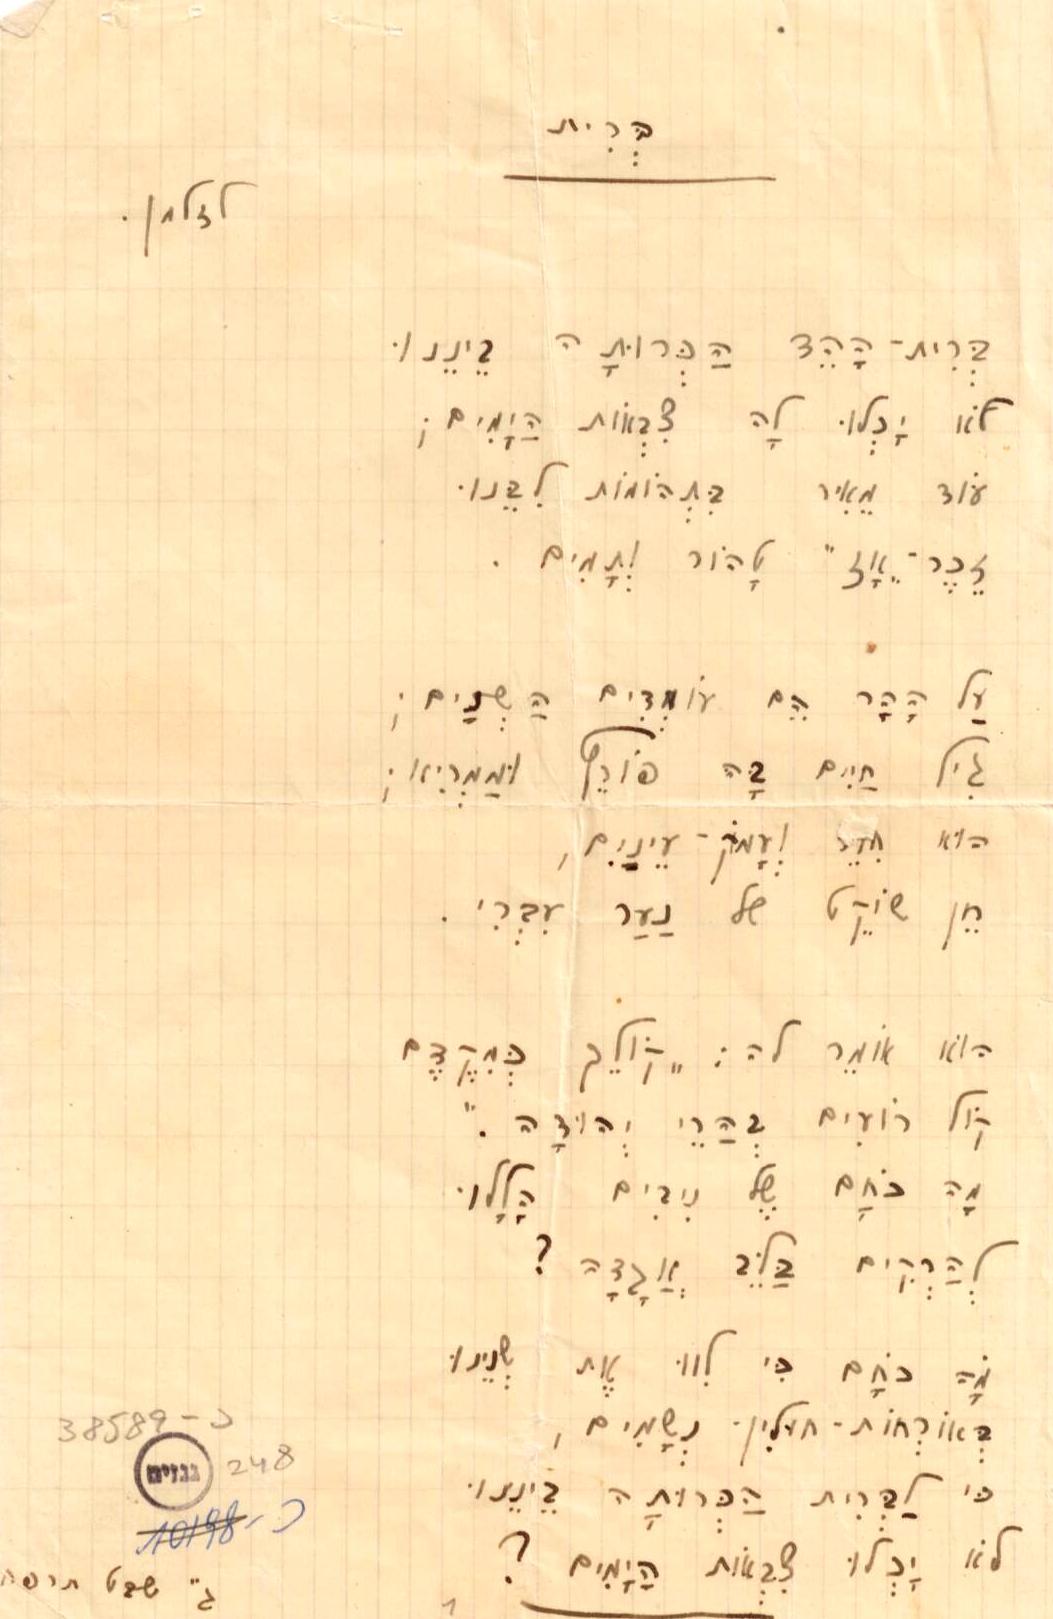 בְּרִית
לזלמן.
בְּרִית-הָהֵד הַכְּרוּתָה בֵּינֵנוּ
לֹא יָכְלוּ לָהּ צִבְאוֹת הַיָּמִים;
עוֹד מֵאִיר בִּתְהוֹמוֹת לִבֵּנוּ
זֵכֶר-„אָז" טָהוֹר וְתָמִים.
עַל הָהָר הֵם עוֹמְדִים הַשְּׁנַיִם;
גִּיל חַיִּים בָּהּ פּוֹרֵץ וּמַמְרִיא;
הוּא חִוֵּר וְעָמֹק-עֵינַיִם,
חֵן שׁוֹקֵט של נַעַר עִבְרִי.
הוּא אוֹמֵר לה: „קוֹלֵךְ כְּמִקֶּדֶם
קוֹל רוֹעִים בְּהָרֵי יְהוּדָה."
מָה כֹּחָם שֶׁל נִיבִים הַלָּלוּ
לְהַרְקִים בַּלֵּב אַגָּדָה?
מָה כֹּחָם כִּי לִוּוּ אֶת שְׁנֵינוּ
בְּאוֹרְחוֹת-חוּלִין נְשַׁמִּים,
כִּי לַבְּרִית הַכְּרוּתָה בֵּינֵנוּ
לֹא יָכְלוּ צִבְאוֹת הַיָּמִים?
כ-38589
גנזים
248
כ-10198
ג" שבט תרפח
1